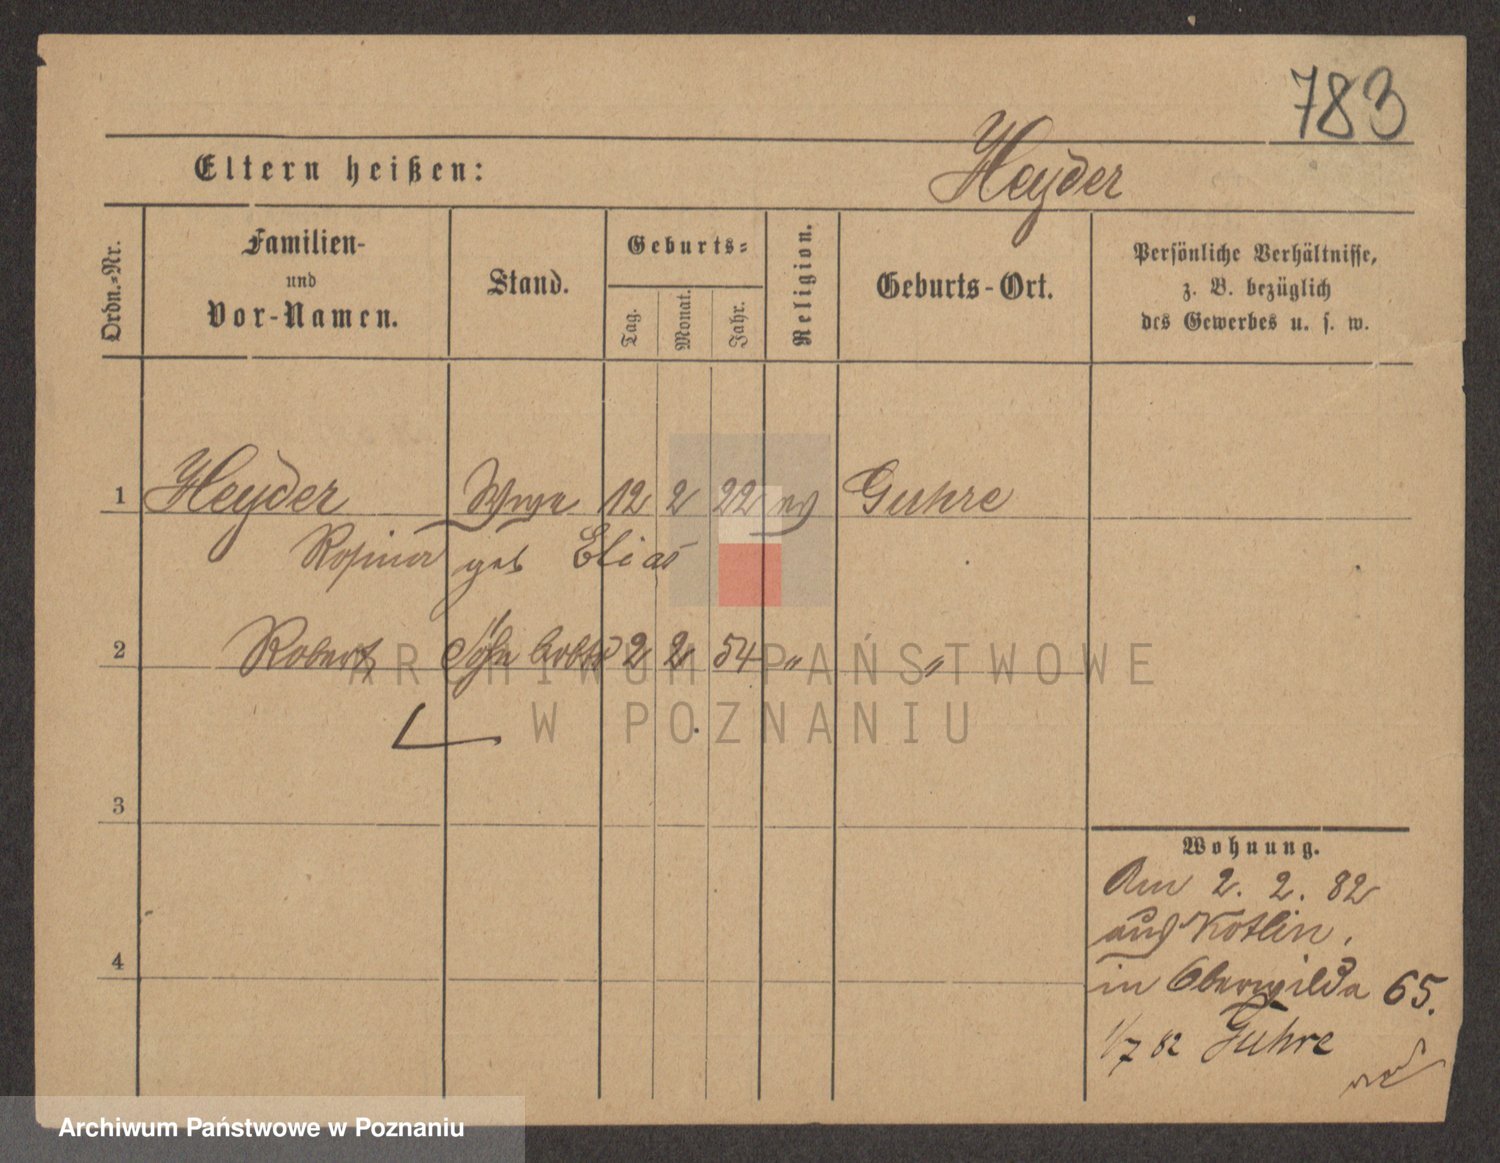 783
Eltern heißen: Heyder
Ordn.-Nr.
Familien-
und
Vor-Namen.
Stand.
Geburts-
Tag.
Monat.
Jahr.
Religion.
Geburts-Ort.
Persönliche Verhältnisse,
z. B. bezüglich
des Gewerbes u. s. w.
1 Heyder Wwe 12 2 22 ev Guhre
Rosina geb Elias
2 Robert Sohn 2 2 54 " "
3
4
Wohnung.
Am 2. 2. 82
aus Kotlin.
in Oberwilda 65.
1/7 82 Guhre
ARCHIWUM PAŃSTWOWE
W POZNANIU
Archiwum Państwowe w Poznaniu